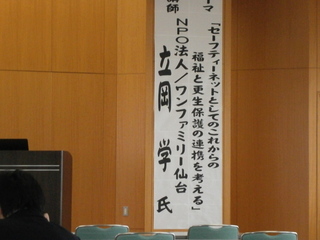 ーマ
「セーフティーネットとしてのこれからの
福祉と更生保護の連携を考える」
講師
NPO法人/ワンファミリー仙台
立岡 学 氏